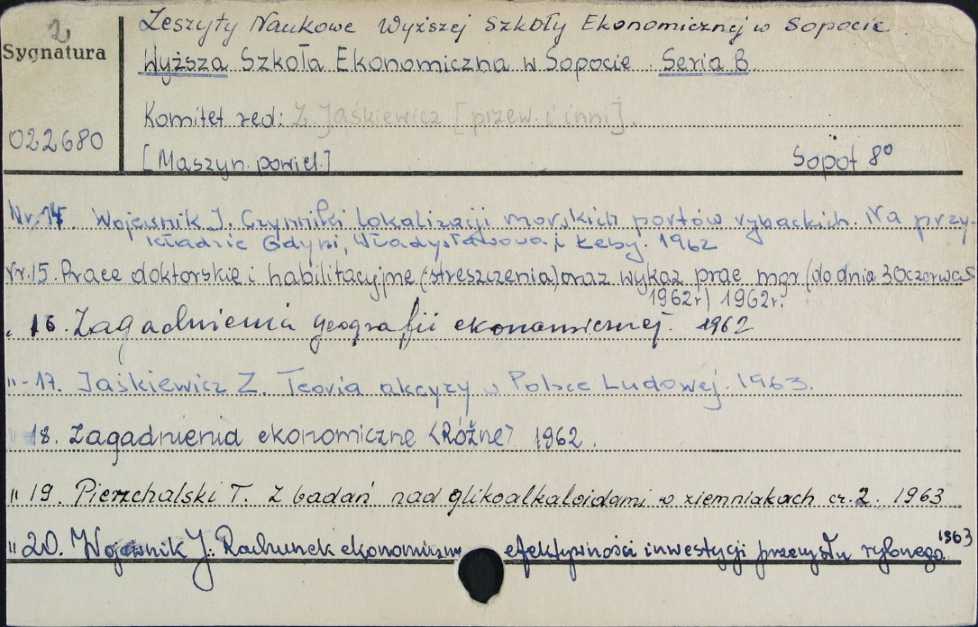 2
Sygnatura
022680
Zeszyty Naukowe Wyższej Szkoły Ekonomicznej w Sopocie
Wyższa Szkoła Ekonomiczna w Sopocie Seria B
Komitet red: Z. Jaśkiewicz [przew. i inni].
[Maszyn. powiel.] Sopot 8°
Nr. 14. Wojewnik J. Czynniki lokalizacji morskich portów rybackich. Na przy-
kładzie Gdyni, Władysławowa i Łeby. 1962
Nr. 15. Prace doktorskie i habilitacyjne (streszczenia) oraz wykaz prac mgr (do dnia 30 czerwca
1962r) 1962r.
" 16. Zagadnienia geografii ekonomicznej. 1962
" - 17. Jaśkiewicz Z. Teoria akcyzy w Polsce Ludowej. 1963.
18. Zagadnienia ekonomiczne <Różne> 1962.
" 19. Pierzchalski T. Z badań nad glikoalkaloidami w ziemniakach cz. 2. 1963
" 20. Wojewnik J.: Rachunek ekonomiczny efektywności inwestycji przemysłu rybnego 1963